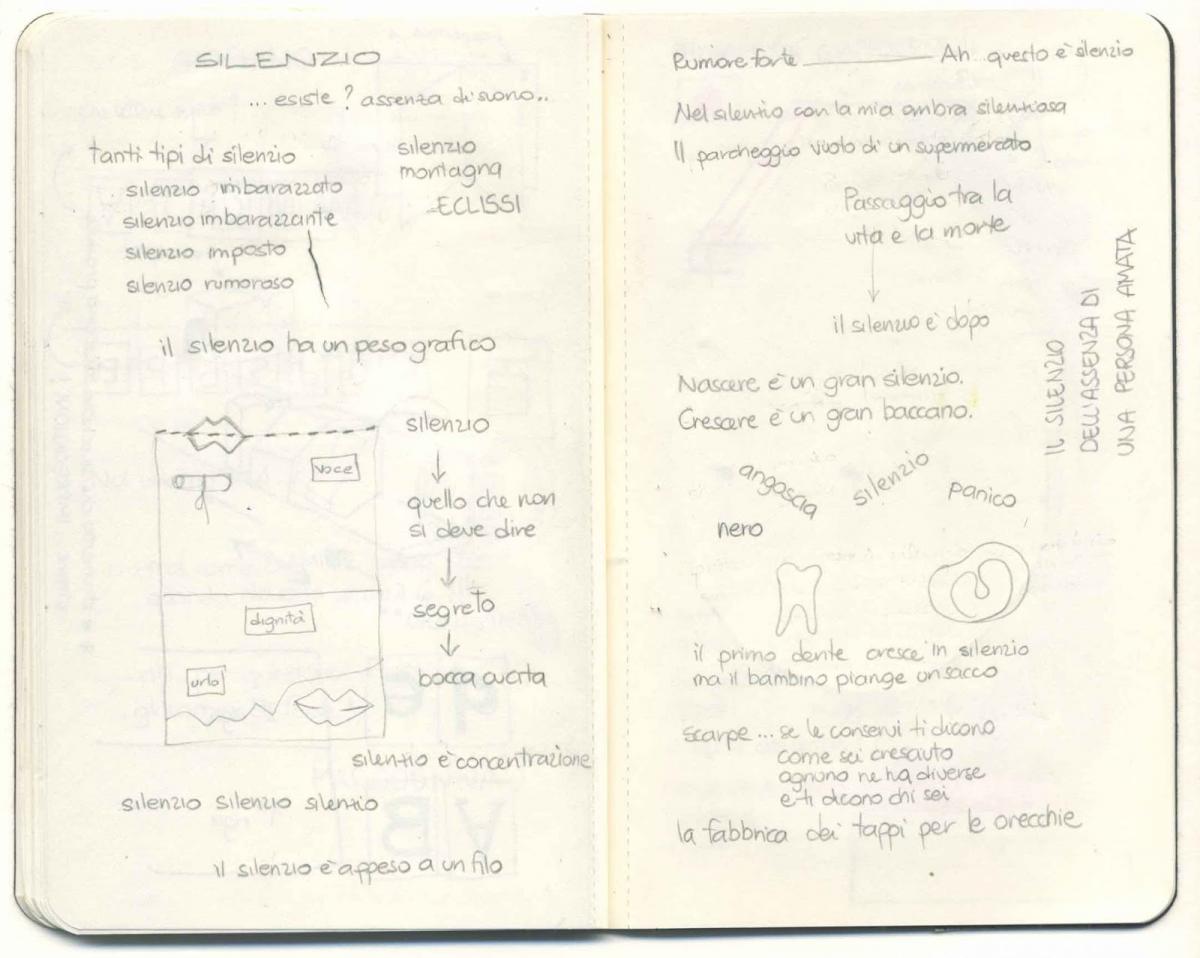 SILENZIO
... esiste? assenza di suono..
tanti tipi di silenzio
silenzio imbarazzato
silenzio imbarazzante
silenzio imposto
silenzio rumoroso
silenzio
montagna
ECLISSI
il silenzio ha un peso grafico
voce
dignità
urlo
silenzio
quello che non
si deve dire
segreto
bocca cucita
silenzio è concentrazione
silenzio silenzio silenzio
il silenzio è appeso a un filo
Rumore forte ———— Ah.. questo è silenzio
Nel silenzio con la mia ombra silenziosa
Il parcheggio vuoto di un supermercato
Passaggio tra la
vita e la morte
il silenzio è dopo
IL SILENZIO
DELL'ASSENZA DI
UNA PERSONA AMATA
Nascere è un gran silenzio.
Crescere è un gran baccano.
angoscia
silenzio
panico
nero
il primo dente cresce in silenzio
ma il bambino piange un sacco
scarpe ... se le conservi ti dicono
come sei cresciuto
ognuno ne ha diverse
e ti dicono chi sei
la fabbrica dei tappi per le orecchie